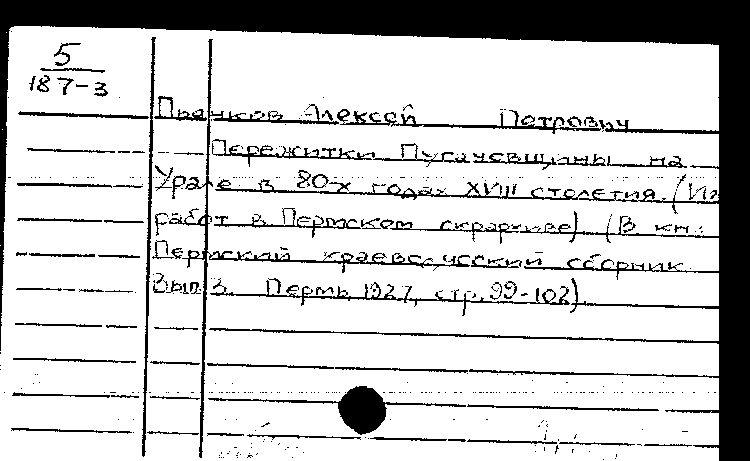 5
187-3
Пьянков Алексей Петрович
Пережитки Пугачевщины на
Урале в 80-х годах XVIII столетия. (Из
работ в Пермском окрархиве) (В кн.:
Пермский краеведческий сборник.
Вып. 3. Пермь, 1927, стр. 99-102)